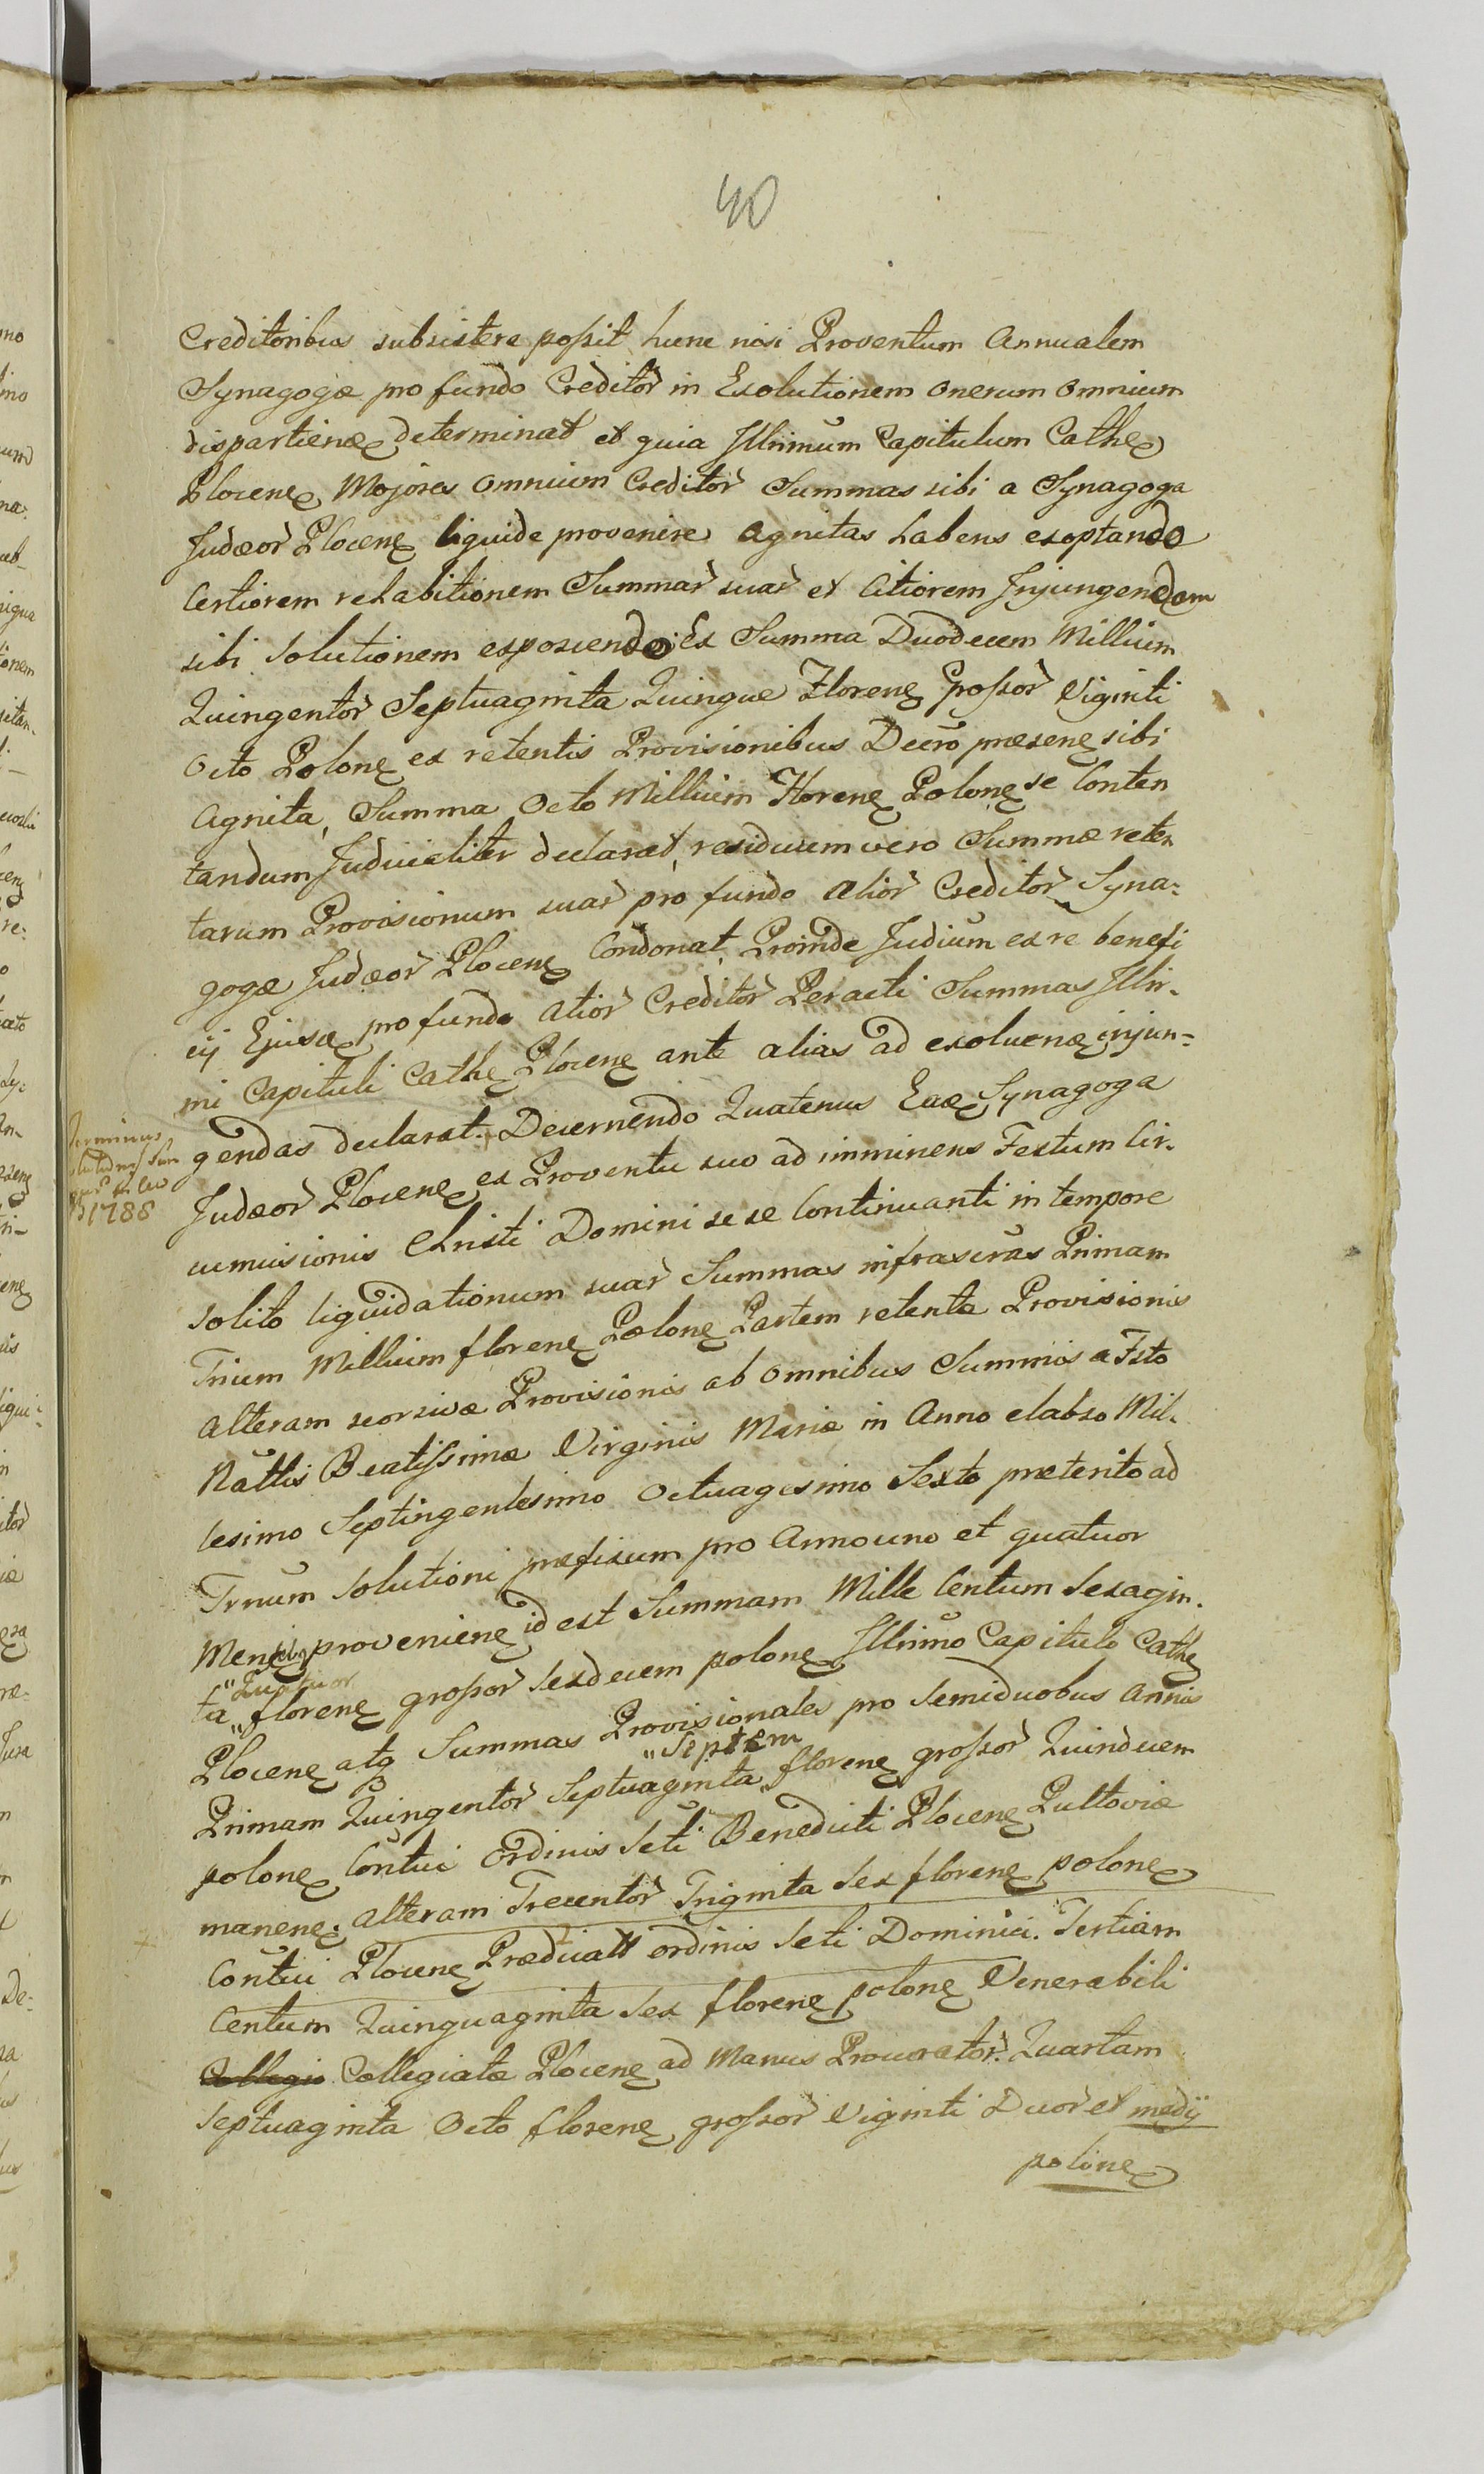 40
Creditoribus subsistere possit hunc nisi Proventum Annualem
Synagogæ pro fundo Creditor in Exolutionem onerum omnium
dispartienꝫ determinat et quia Illrimum Capitulum Catheꝫ
Plocenꝫ Majores omnium Creditor Summas sibi a Synagoga
Judæor Plocenꝫ liquide provenire agnitas habens exoptando
Certiorem rehabitionem Summar suar et Citiorem Injungendam
sibi Solutionem exposcendo: Ex Summa Duodecem Millium
Quingentor Septuaginta Quinque Florenꝫ Grossor Viginti
Octo Polonꝫ ex retentis Provisionibus Decro præsenꝫ sibi
Agnita, Summa Octo Millium Florenꝫ Polonꝫ se Conten
tandum Judicialiter declarat, residuum vero Summæ reten
tarum Provisionum suar pro fundo alior Creditor Syna=
gogæ Judæor Plocenꝫ Condonat, Proinde Judium ex re benefi
cij Ejusdꝫ pro fundo alior Creditor Peracti Summas Illri-
mi Capituli Catheꝫ Plocenꝫ ante alias ad exoluenꝫ injun=
gendas declarat. Decernendo Quatenus Eadꝫ Synagoga
Terminus
1788
Judæor Plocenꝫ ex Proventu suo ad imminens Festum Cir-
cumcisionis Christi Domini sese Continuanti in tempore
solito liquidationum suar Summas infrascras Primam
Trium Millium florenꝫ Polonꝫ Partem retentæ Provisionis
Alteram seorsivæ Provisionis ab omnibus Summis a Fsto
Nattis Beatissimæ Virginis Mariæ in Anno elabso Mil-
lesimo Septingentesimo Octuagesimo Sexto præterito ad
Trnum Solutioni præfixum pro Anno uno et quatuor
Mensibus provenienꝫ id est Summam Mille Centum Sexagin-
"Quatuor
ta " florenꝫ grossor Sexdecem polonꝫ Illrimo Capitulo Catheꝫ
Plocenꝫ atqꝫ Summas Provisionales pro Semiduobus Annis
"Septem
Primam Quingentor Septuaginta " florenꝫ grossor Quindecem
polonꝫ Contui Ordinis Scti Benedicti Plocenꝫ Pultoviæ
manenꝫ. Alteram Trecentor Triginta Sex florenꝫ polonꝫ
Contui Plocenꝫ Prædicatt ordinis Scti Dominici. Tertiam
Centum Quinquaginta Sex florenꝫ polonꝫ Venerabili
Collegio Collegiatæ Plocenꝫ ad Manus Procurator. Quartam
Septuaginta Octo florenꝫ grossor Viginti Duor et medij
polonꝫ